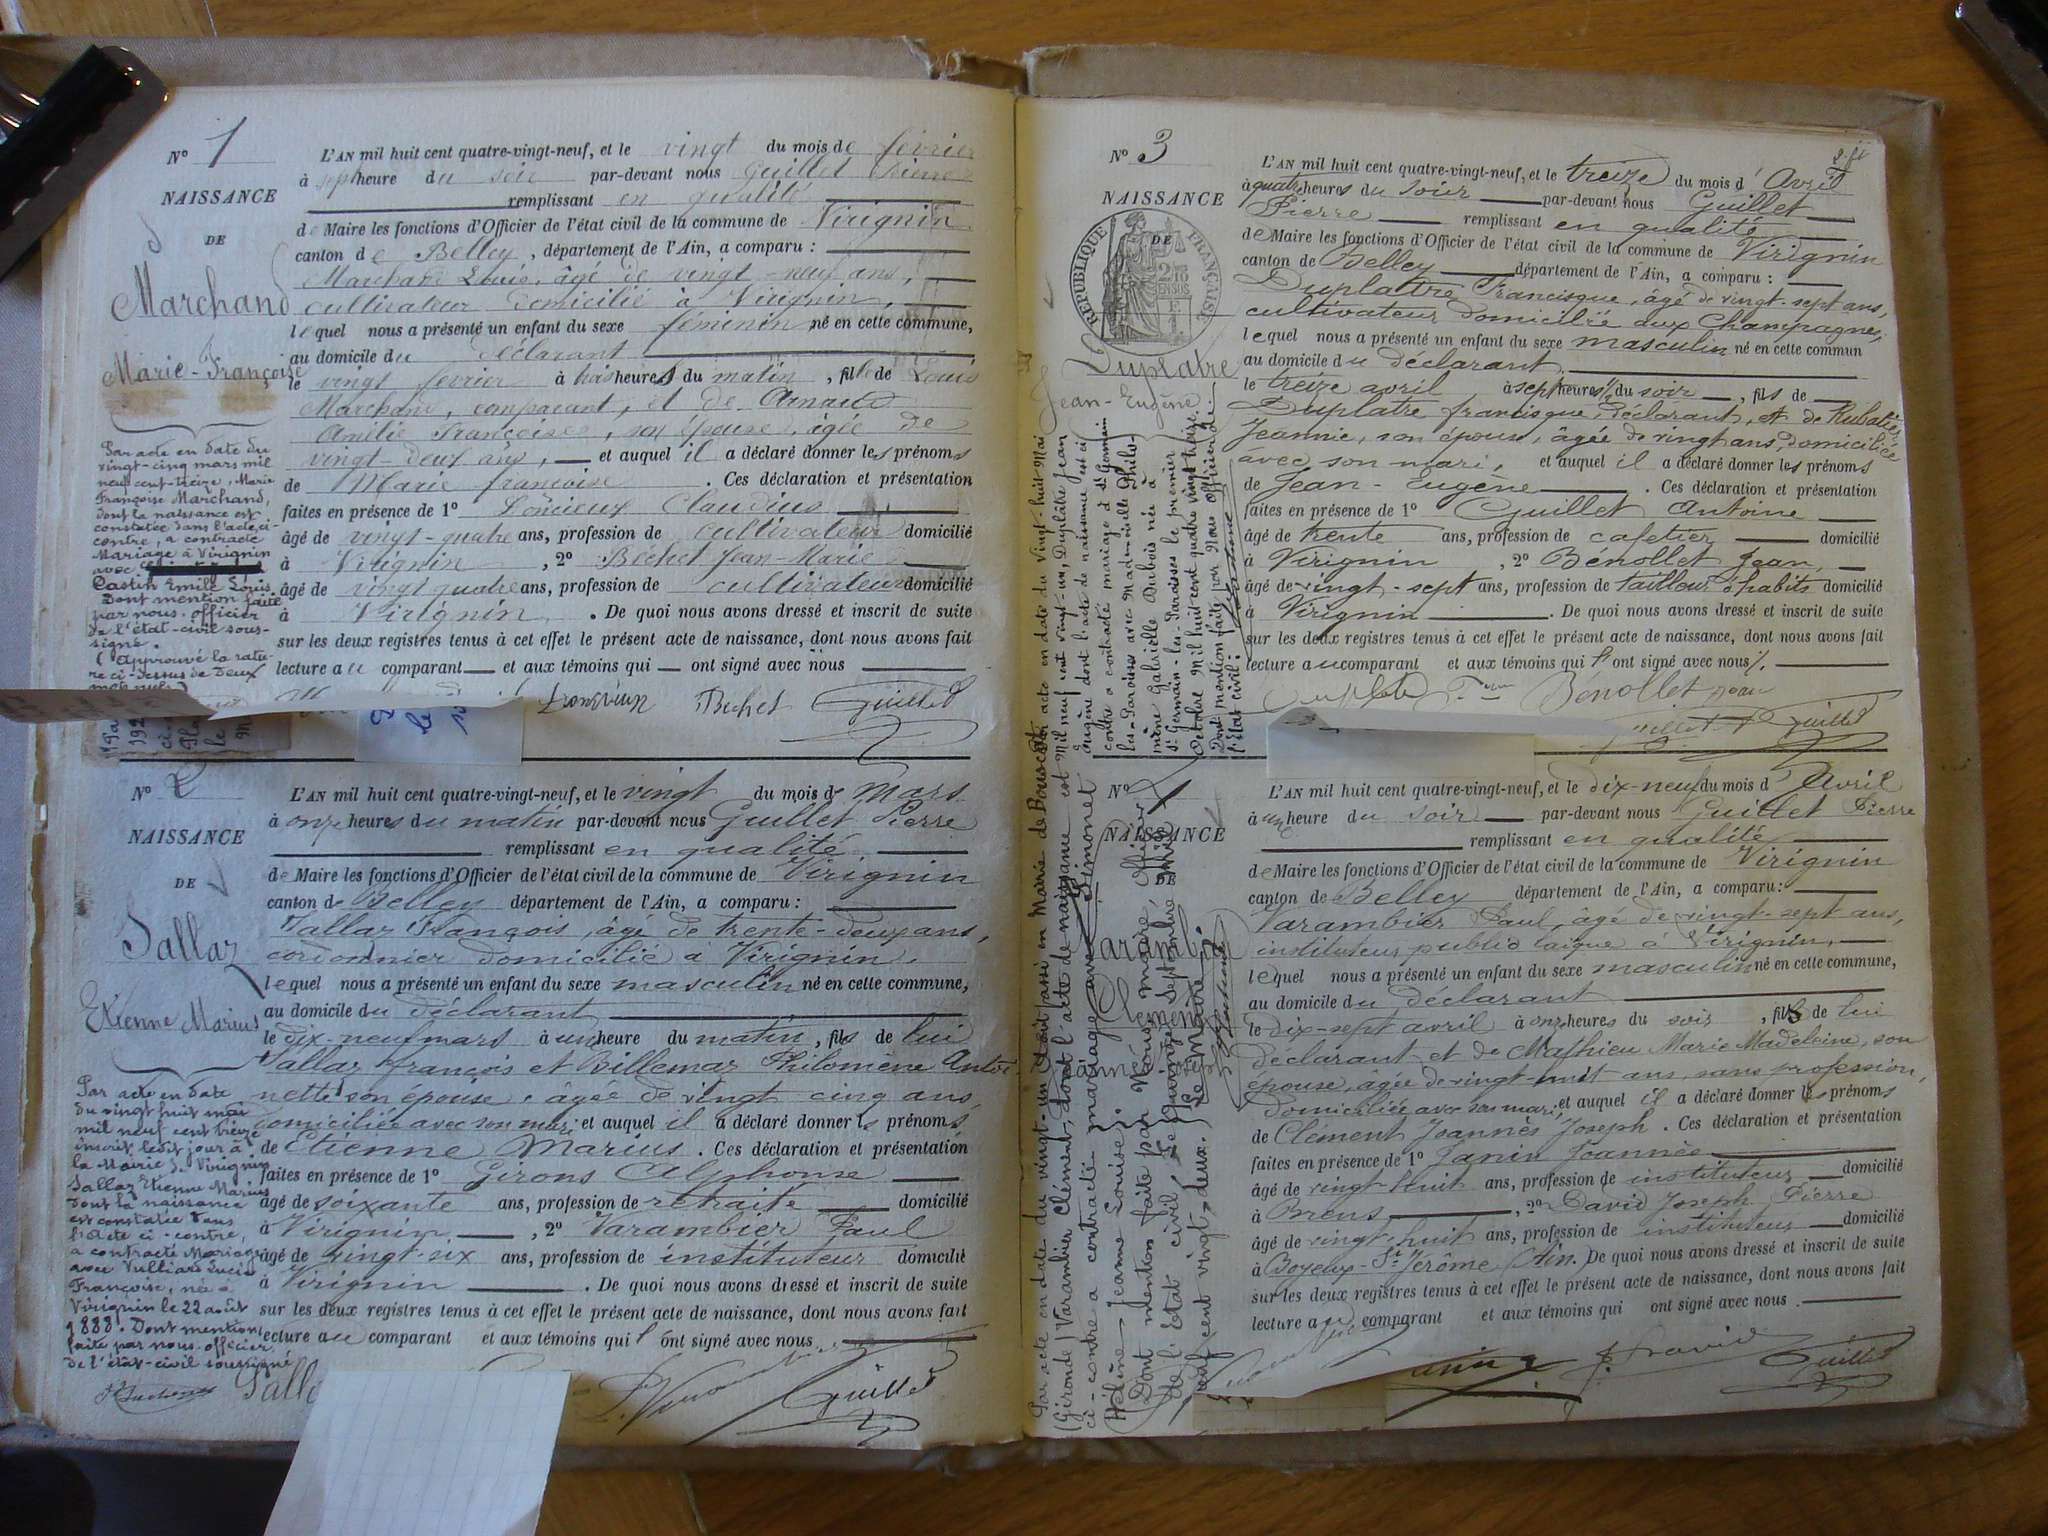 N° 1
NAISSANCE
DE
Marchand
Marie-Françoise
Par acte en date du
vingt-cinq mars mil
neuf cent treize, Marie
Françoise Marchand,
dont la naissance est
constatée dans l'acte ci-
contre, a contracté
Mariage à Virignin
avec
Castin Emile Louis.
Dont mention faite
par nous officier
de l'état-civil sous-
signé.
(Approuvé la ratu-
re ci-dessus de deux
mots nuls)
L'AN mil huit cent quatre-vingt-neuf, et le vingt du mois de février
à sept heure du soir par-devant nous Guillet Pierre
remplissant en qualité
de Maire les fonctions d'Officier de l'état civil de la commune de Virignin
canton de Belley, département de l'Ain, a comparu :
Marchand Louis, âgé de vingt-neuf ans,
cultivateur domicilié à Virignin,
lequel nous a présenté un enfant du sexe féminin né en cette commune,
au domicile du déclarant
le vingt février à trois heures du matin, fille de Louis
Marchand, comparant, et de Arnaud
Amélie Françoise, son épouse, âgée de
vingt-deux ans, et auquel il a déclaré donner les prénoms
de Marie françoise. Ces déclaration et présentation
faites en présence de 1° Claudius
âgé de vingt-quatre ans, profession de cultivateur domicilié
à Virignin, 2° Béchet Jean-Marie
âgé de vingt quatre ans, profession de cultivateur domicilié
à Virignin. De quoi nous avons dressé et inscrit de suite
sur les deux registres tenus à cet effet le présent acte de naissance, dont nous avons fait
lecture au comparant et aux témoins qui ont signé avec nous
Bechet Guillet
N° 2
NAISSANCE
DE
Tallaz
Etienne Marius
Par acte en date
du vingt huit mai
mil neuf cent treize
inscrit ledit jour à
la Mairie de Virignin
Tallaz Etienne Marius
dont la naissance
est constatée dans
l'acte ci-contre,
a contracté Mariage
avec Vulliard Lucie
Françoise, née à
Virignin le 22 août
1888. Dont mention
faite par nous officier
de l'état-civil soussigné
L'AN mil huit cent quatre-vingt-neuf, et le vingt du mois de Mars
à onze heures du matin par-devant nous Guillet Pierre
remplissant en qualité
de Maire les fonctions d'Officier de l'état civil de la commune de Virignin
canton de Belley département de l'Ain, a comparu :
Tallaz François, âgé de trente-deux ans,
cordonnier domicilié à Virignin.
lequel nous a présenté un enfant du sexe masculin né en cette commune,
au domicile du déclarant
le dix-neuf mars à une heure du matin, fils de lui
Tallaz François et Billemaz Philomène Antoi
nette son épouse, âgée de vingt cinq ans,
domiciliée avec son mari et auquel il a déclaré donner les prénoms
de Etienne Marius. Ces déclaration et présentation
faites en présence de 1° Girons Alphonse
âgé de soixante ans, profession de retraité domicilié
à Virignin, 2° Varambier Paul
âgé de vingt-six ans, profession de instituteur domicilié
à Virignin. De quoi nous avons dressé et inscrit de suite
sur les deux registres tenus à cet effet le présent acte de naissance, dont nous avons fait
lecture au comparant et aux témoins qui ont signé avec nous.
Guillet
N° 3
NAISSANCE
DE
RÉPUBLIQUE FRANÇAISE
Duplatre
Jean-Eugène
Par acte en date du vingt huit Mai
Mil neuf cent vingt-un, Duplâtre Jean
Eugène dont l'acte de naissance est ci
contre a contracté mariage à St Germain
les-Paroisses avec Mademoiselle Philo-
mène Gabrielle Dubois née à
St Germain-les-Paroisses le premier
Octobre mil huit cent quatre vingt treize.
Dont mention faite par Nous Officier de
l'état civil :
L'AN mil huit cent quatre-vingt-neuf, et le treize du mois d'Avril
à quatre heures du soir par-devant nous Guillet
Pierre remplissant en qualité
de Maire les fonctions d'Officier de l'état civil de la commune de Virignin
canton de Belley département de l'Ain, a comparu :
Duplatre Francisque, âgé de vingt-sept ans,
cultivateur domicilié aux Champagnes,
lequel nous a présenté un enfant du sexe masculin né en cette commun
au domicile du déclarant
le treize avril à sept heures du soir, fils de
Duplatre francisque, déclarant, et de Rubatier
Jeannie, son épouse, âgée de vingt ans, domiciliée
avec son mari, et auquel il a déclaré donner les prénoms
de Jean-Eugène. Ces déclaration et présentation
faites en présence de 1° Guillet Antoine
âgé de trente ans, profession de cafetier domicilié
à Virignin, 2° Bénollet Jean,
âgé de vingt-sept ans, profession de tailleur d'habits domicilié
à Virignin. De quoi nous avons dressé et inscrit de suite
sur les deux registres tenus à cet effet le présent acte de naissance, dont nous avons fait
lecture au comparant et aux témoins qui ont signé avec nous
Bénollet Jean
Guillet
N°
NAISSANCE
DE
Varambier
Clément
Par acte en date du vingt-un Août passé en Mairie de Bouscat
(Gironde) Varambier Clément, dont l'acte de naissance est
ci-contre a contracté mariage avec Simonet
Hélène Jeanne Louise.
Dont mention faite par Nous, maire Officier
de l'état civil, le quinze septembre mil
neuf cent vingt-deux. Le Maire
L'AN mil huit cent quatre-vingt-neuf, et le dix-neuf du mois d'Avril
à une heure du soir par-devant nous Guillet Pierre
remplissant en qualité
de Maire les fonctions d'Officier de l'état civil de la commune de Virignin
canton de Belley département de l'Ain, a comparu :
Varambier Paul, âgé de vingt-sept ans,
instituteur public laïque à Virignin,
lequel nous a présenté un enfant du sexe masculin né en cette commune,
au domicile du déclarant
le dix-sept avril à onze heures du soir, fils de lui
déclarant et de Mathieu Marie Madeleine, son
épouse, âgée de vingt-huit ans, sans profession,
domiciliée avec son mari, et auquel il a déclaré donner les prénoms
de Clément Joannès Joseph. Ces déclaration et présentation
faites en présence de 1° Janin Joannès
âgé de vingt-huit ans, profession de instituteur domicilié
à Brens, 2° David Joseph Pierre
âgé de vingt-huit ans, profession de instituteur domicilié
à Boyeux-St Jérôme (Ain. De quoi nous avons dressé et inscrit de suite
sur les deux registres tenus à cet effet le présent acte de naissance, dont nous avons fait
lecture au comparant et aux témoins qui ont signé avec nous.
David Guillet